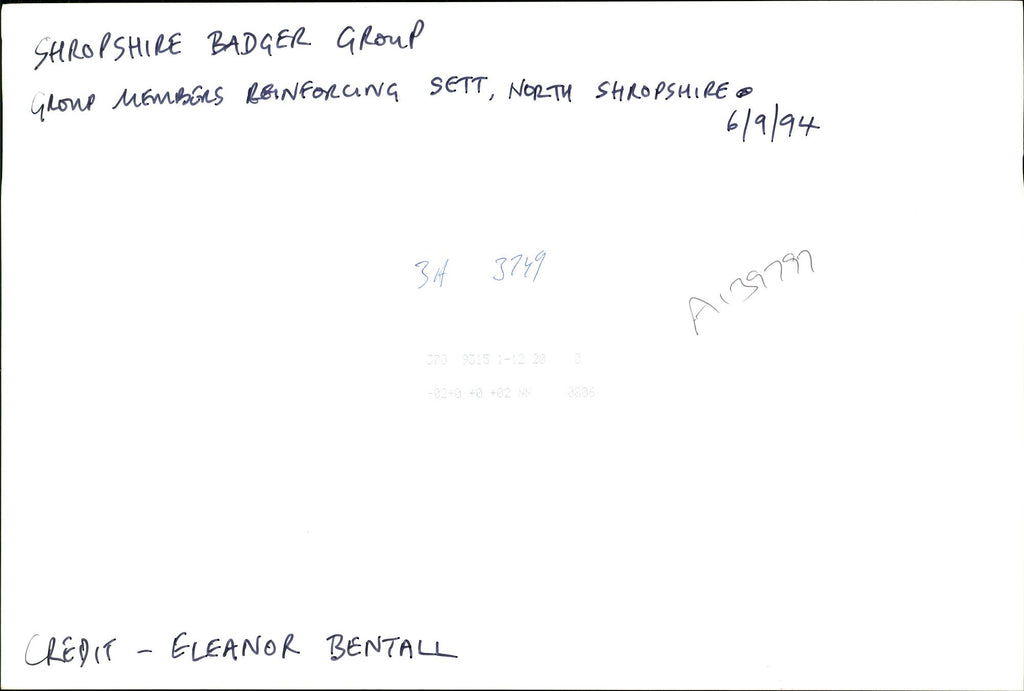 SHROPSHIRE BADGER GROUP
GROUP MEMBERS REINFORCING SETT, NORTH SHROPSHIRE.
6/9/94
3A 3749
A139797
370 9315 1-12 20 0
CREDIT - ELEANOR BENTALL